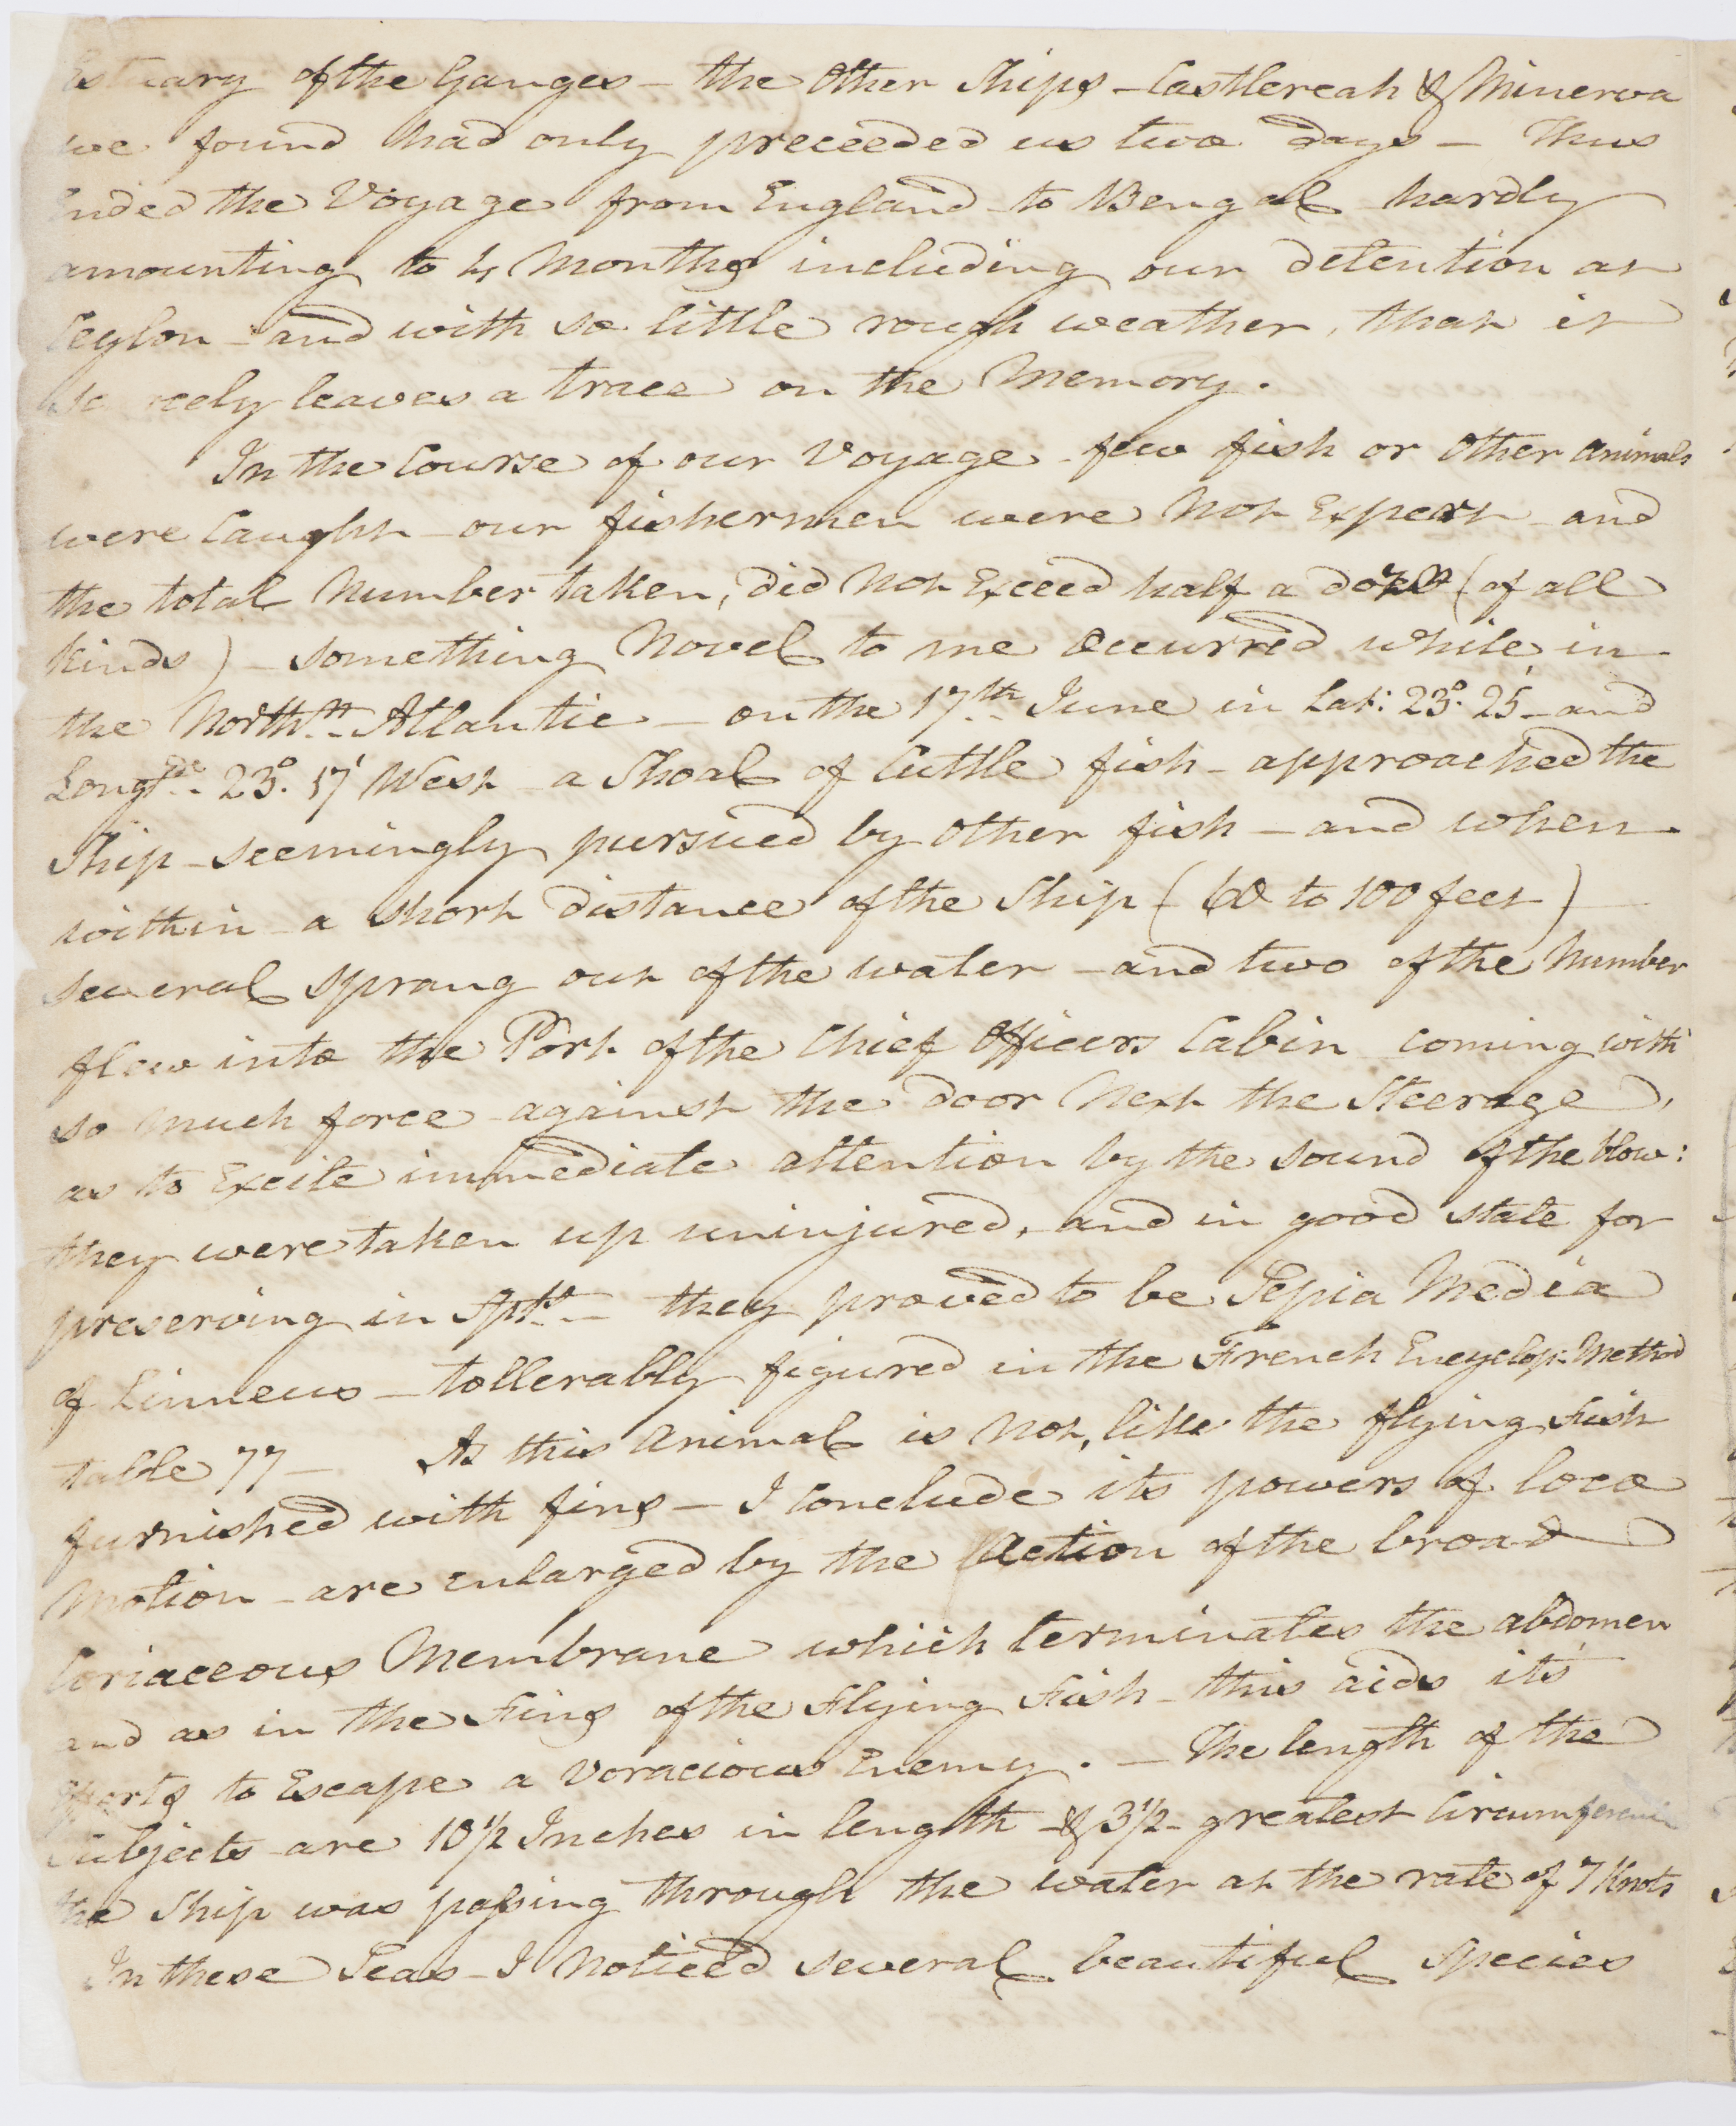 Estuary of the Ganges – the Other Ships – Castlereah & Minerva
we found had only preceeded us two days – Thus
Ended the Voyage from England to Bengal hardly
amounting to 4 Months including our detention at
Ceylon – and with so little rough weather, that it
scarcely leaves a trace on the Memory.
In the Course of our Voyage – few fish or Other animals
were Caught – our fishermen were Not Expert – and
the total Number taken, did Not Exceed half a dozn (of all
Kinds) – something Novel to me Occurred while in
the North.n Atlantic – on the 17.th June in Lat: 23°. 25' – and
Long.de 23°. 17' West – a Shoal of Cuttle fish – approached the
Ship – seemingly pursued by Other fish – and when
within – a short distance of the Ship (60 to 100 feet)
several sprang out of the water – and two of the Number
flew into the Port of the Chief Officers Cabin coming with
so much force – against the door Next the Steerage,
as to Excite immediate attention by the sound of the blow:
they were taken up uninjured, and in good state for
preserving in Spts. – they proved to be Sepia Media
of Linneus – tollerably figured in the French Encyclop: Method
table 77 – As this Animal is Not, like the flying Fish
furnished with fins – I Conclude its powers of loco
Motion – are enlarged by the Action of the broad
Coriaceous Membrane which terminates the abdomen
and as in the Fins of the Flying Fish – this aids its
Efforts to Escape a Voracious Enemy. – The length of the
Subjects are 10½ Inches in length & 3½ greatest Circumference
the Ship was passing through the water at the rate of 7 Knots
In these Seas – I Noticed several beautiful Species